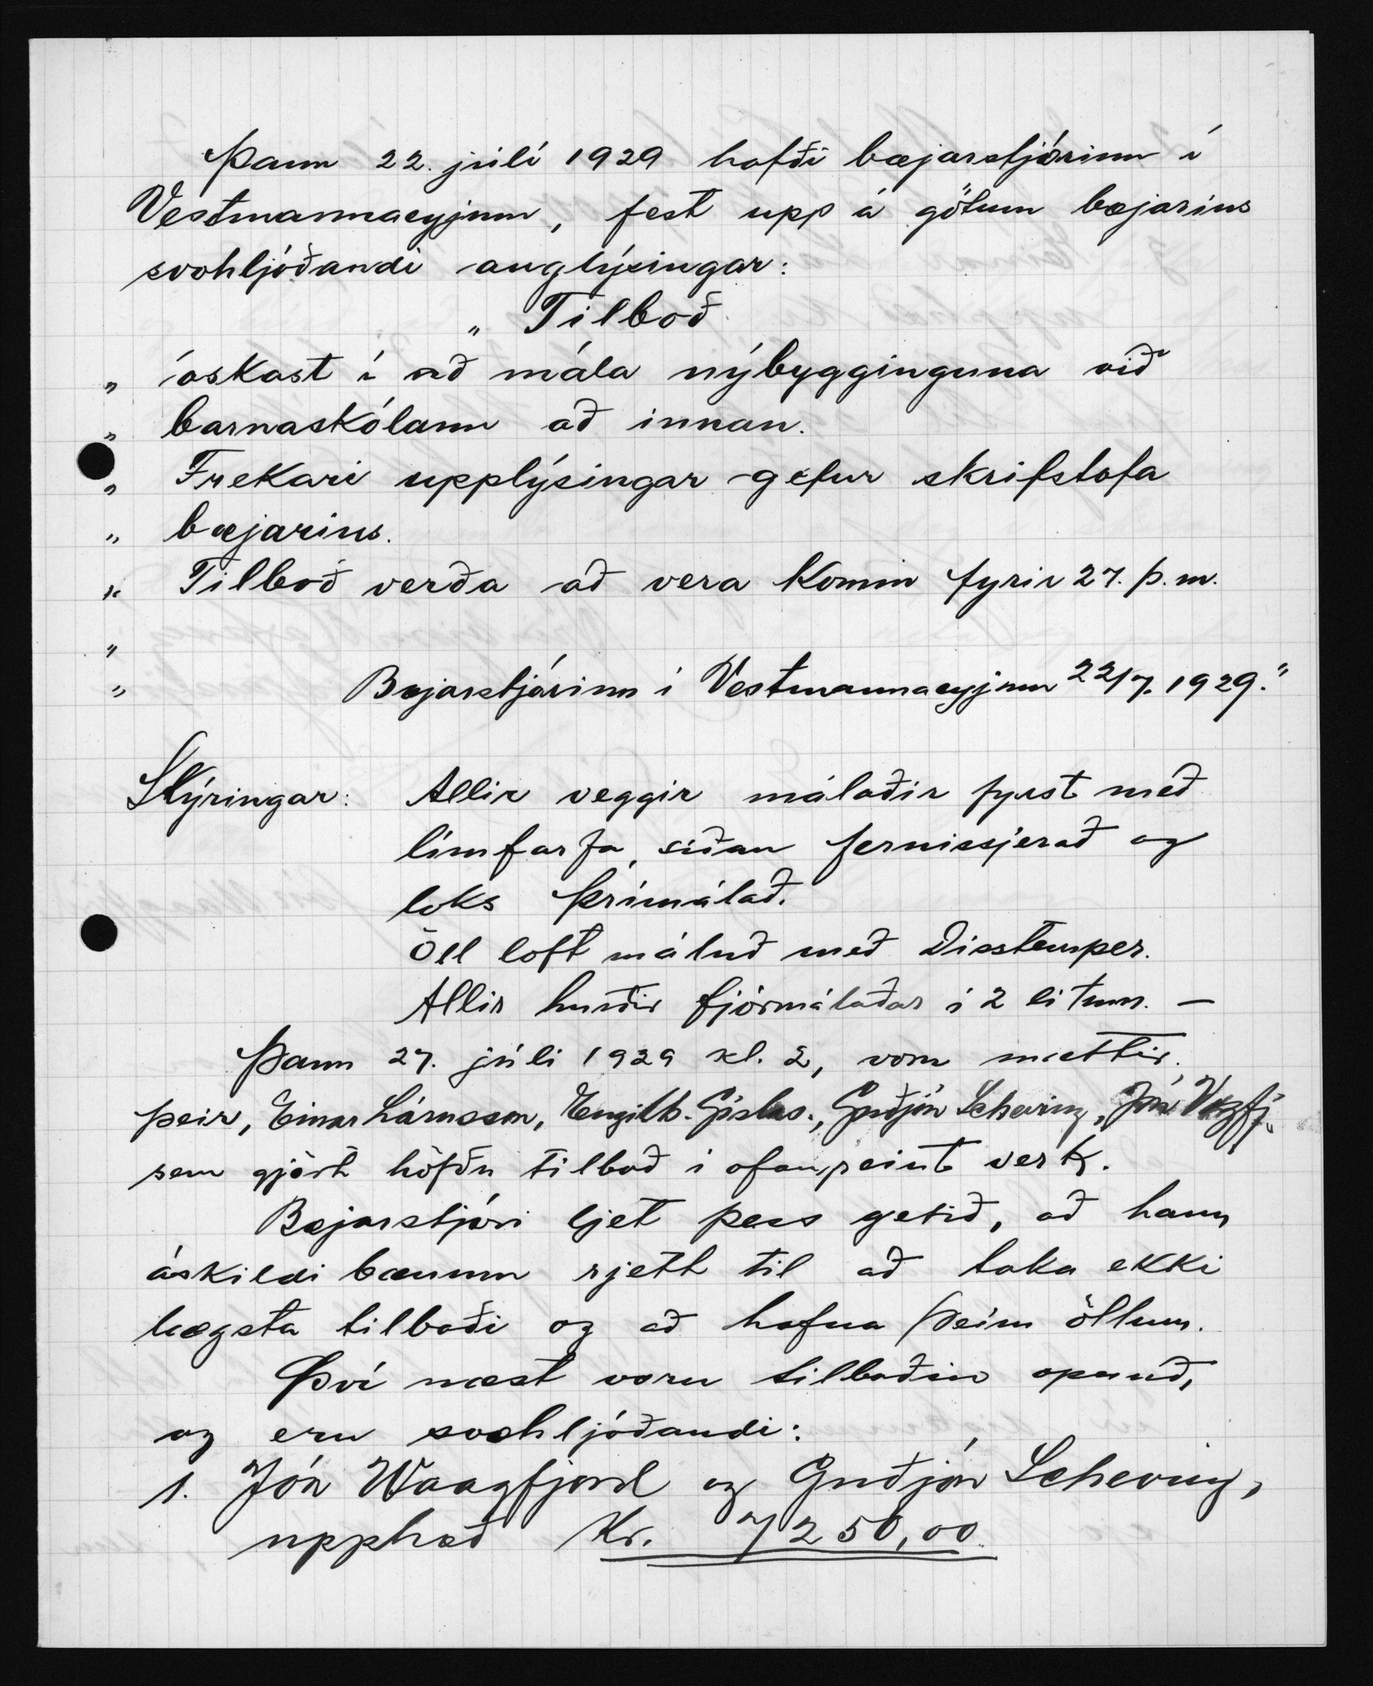 Þann 22. júlí 1929 hafði bæjarstjórinn í
Vestmannaeyjum, fest upp á götum bæjarins
svohljóðandi auglýsingar:
" Tilboð
" óskast í að mála nýbygginguna við
" barnaskólann að innan.
" Frekari upplýsingar gefur skrifstofa
" bæjarins.
" Tilboð verða að vera komin fyrir 27. þ.m.
"
" Bæjarstjórinn í Vestmannaeyjum 22/7. 1929."
Skýringar: Allir veggir málaðir fyrst með
límfarfa, síðan fernissjerað og
loks þrímálað.
Öll loft máluð með Disstemper.
Allir hurðir fjórmálaðar í 2 litum. —
Þann 27. júlí 1929 kl. 2, voru mættir
þeir, Einar Lárusson, Engilb. Gíslas., Guðjón Scheving, Jón Vagfj.
sem gjört höfðu tilboð í ofangreint verk.
Bæjarstjóri ljet þess getið, að hann
áskildi bænum rjett til að taka ekki
lægsta tilboði og að hafna þeim öllum.
Því næst voru tilboðin opnuð,
og eru svohljóðandi:
1. Jón Waagfjord og Guðjón Scheving,
upphæð Kr. 7250,00